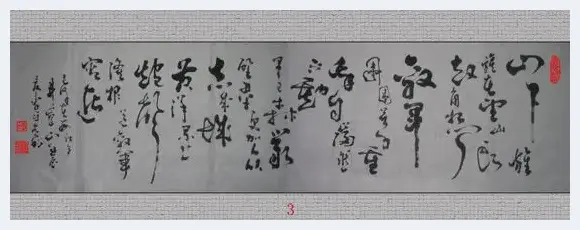 山下旌
旗在望山头
鼓角相闻
敌军
围困万千重
我自岿然
不动
早已森严
壁垒更加众
志成城
黄洋界上
炮声
隆报道敌军
宵遁
3